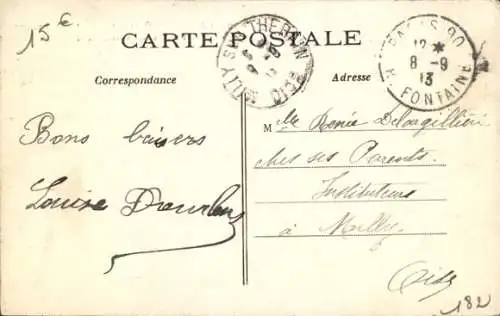 15€
CARTE POSTALE
Correspondance
Adresse
MILLY S/ THERAIN
OISE
PARIS 90
12 *
8 - 9
13
R. FONTAINE
Bons baisers
Louise
M lle Renée Delargillière
chez ses Parents.
Instituteurs
à Milly.
Oise
182